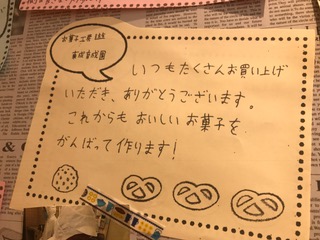 お菓子工房
東成育成園
いつもたくさんお買い上げ
いただき、ありがとうございます。
これからも おいしい お菓子を
がんばって作ります！